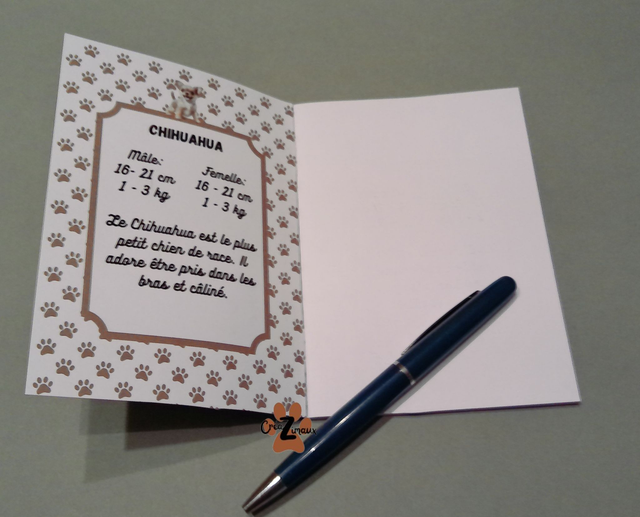 CHIHUAHUA
Mâle:
16- 21 cm
1 - 3 kg
Femelle:
16 - 21 cm
1 - 3 kg
Le Chihuahua est le plus
petit chien de race. Il
adore être pris dans les
bras et câliné.
CréaZ'imaux